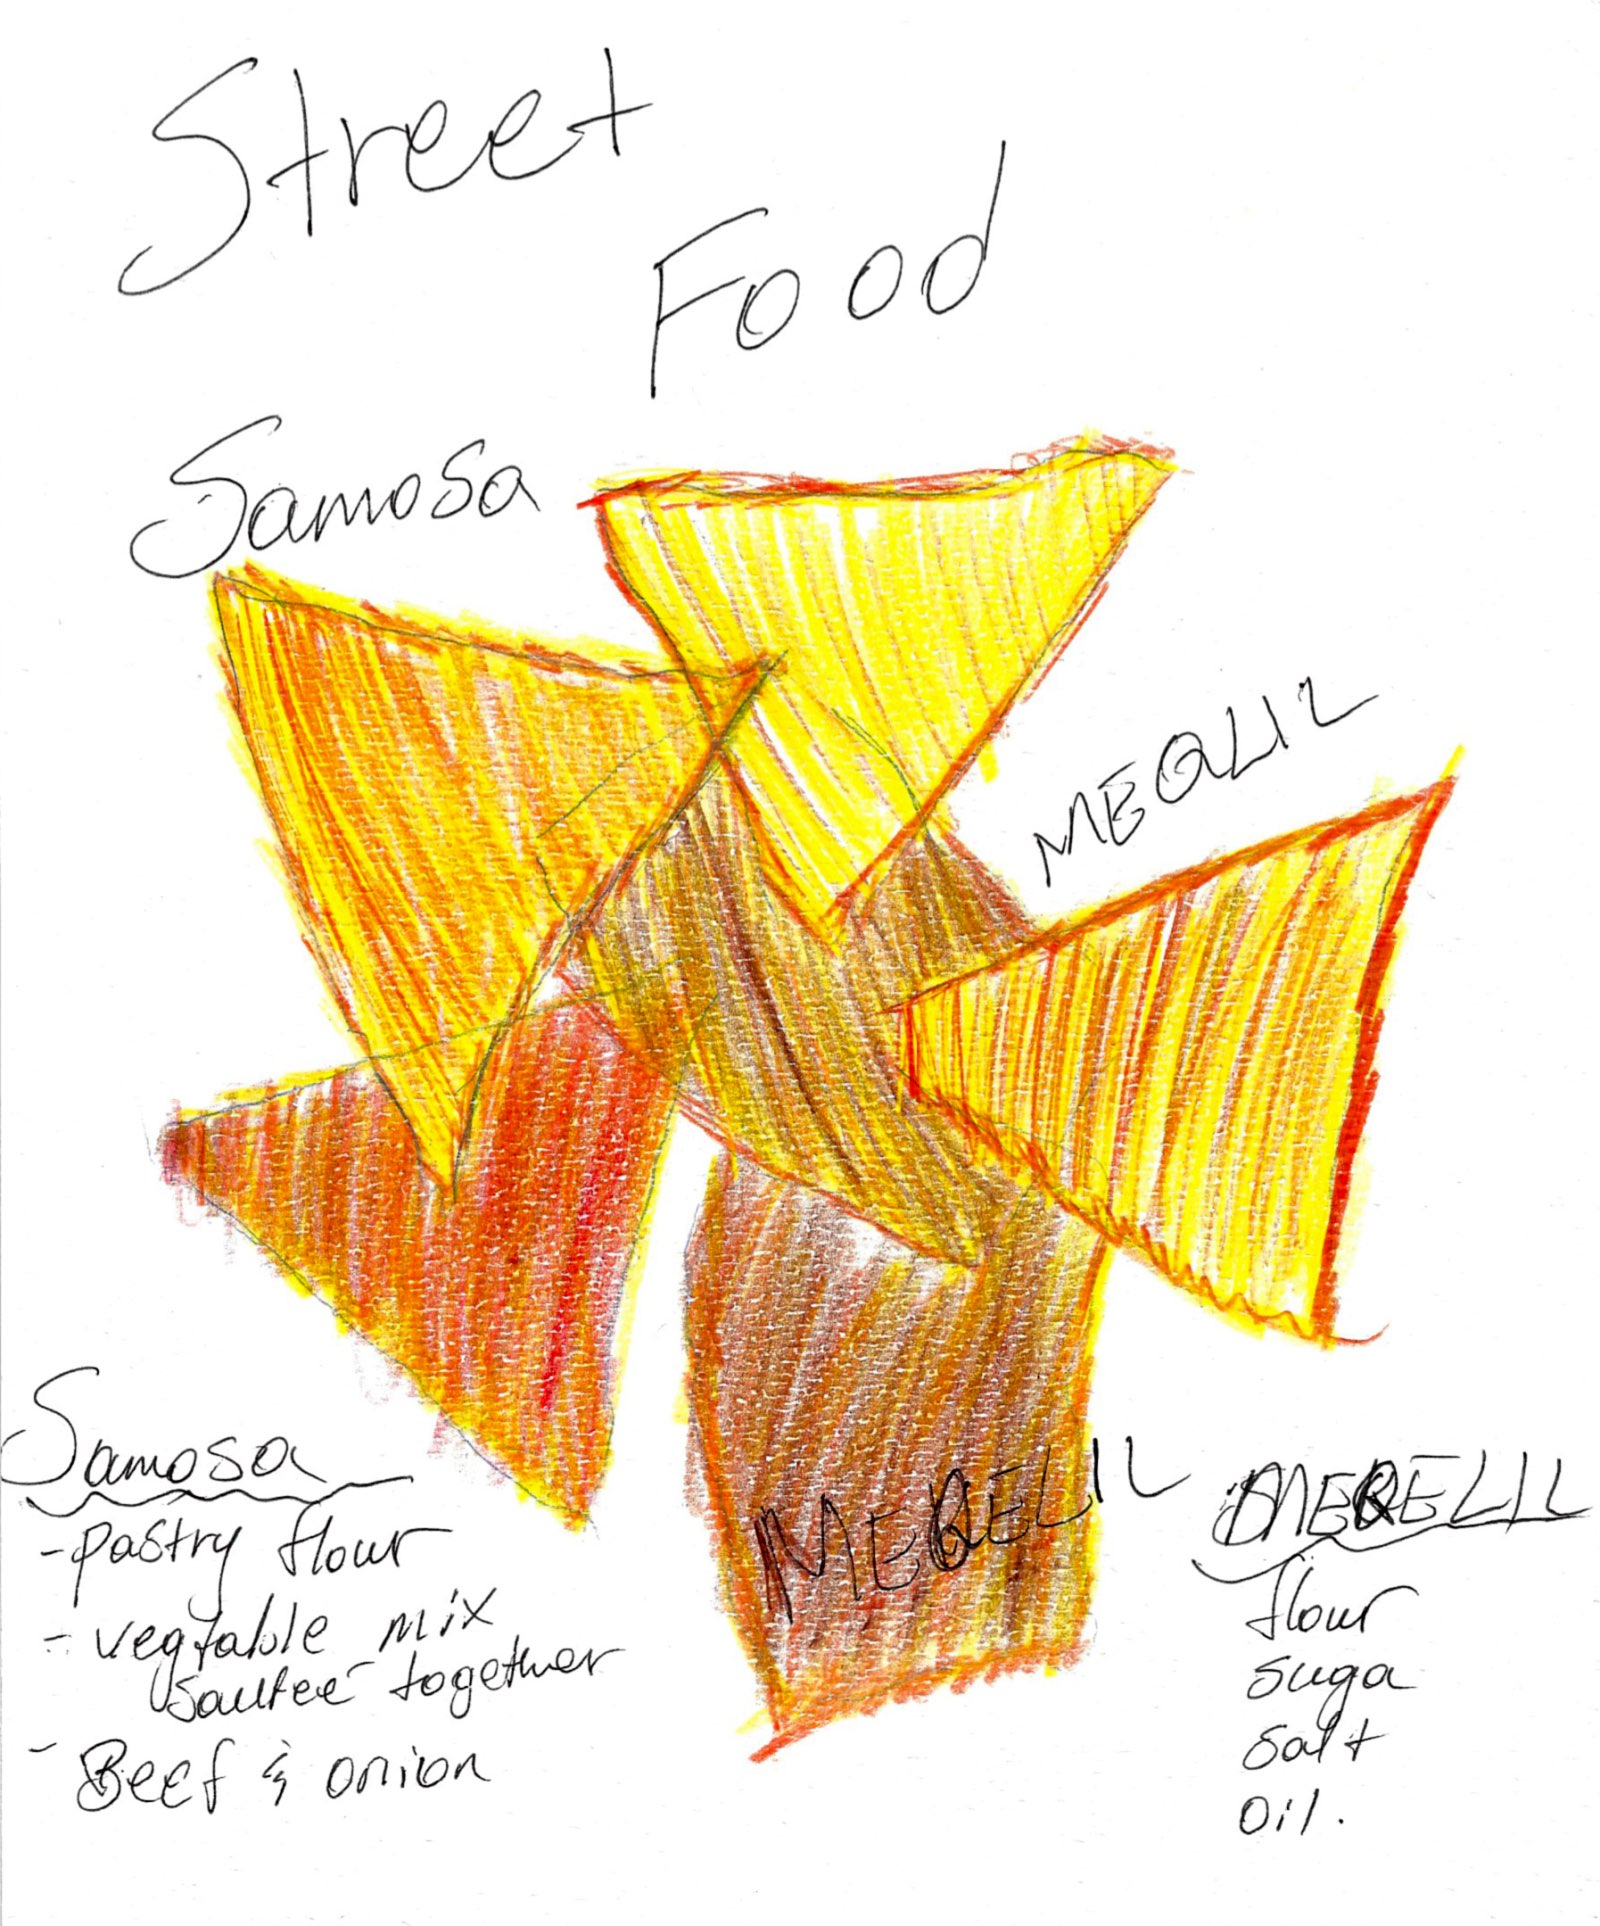 Street
Food
Samosa
MEQLIL
MEQELIL
Samosa
- Pastry flour
- vegtable mix
sautee together
- Beef & onion
MEQELIL
flour
suga
salt
oil.